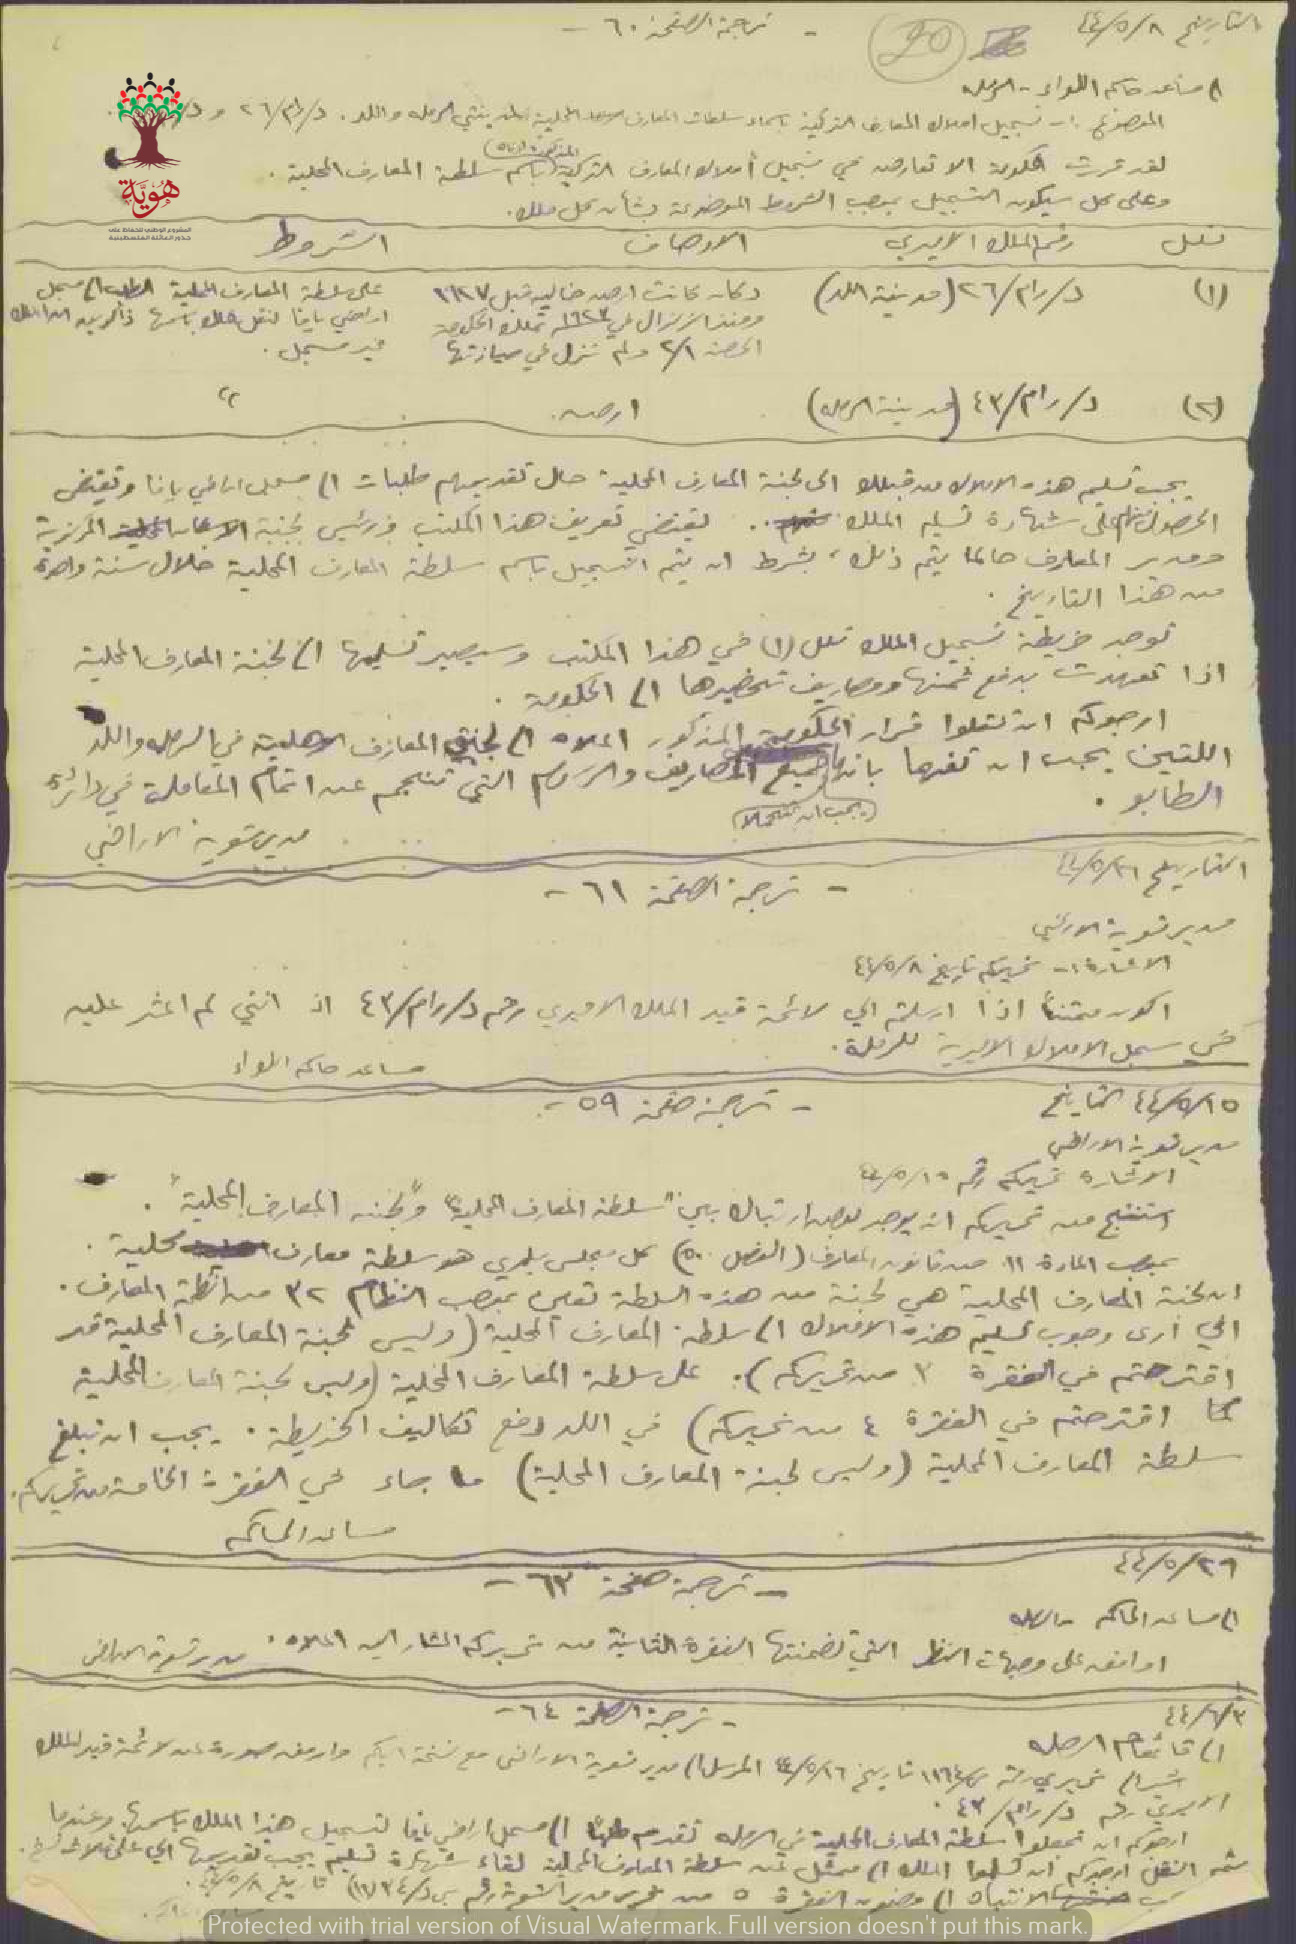 التاريخ ٤٤/٥/٨
- ترجمة الصفحة ٦٠ -
20
هُوِيَّة
المشروع الوطني للحفاظ على
جذور العائلة الفلسطينية
مساعد حاكم اللواء - الرملة
الموضوع :- تسجيل املاك المعارف التركية باسماء سلطات المعارف المحلية لمدينتي الرملة واللد. د/رام/٢٦ و د/
لقد قررت الحكومة الا تعارض في تسجيل أملاك المعارف التركية (المذكورة ادناه) باسم سلطة المعارف المحلية .
وعلى كل سيكون التسجيل بموجب الشروط الموضوعة بشأن كل ملك.
رقم الملك الاميري الاوصاف الشروط
(١) د/رام/٢٦ (مدينة اللد) دكان كانت ارض خالية قبل ١٩٢٧ على سلطة المعارف المحلية الطلب الى مسجل
ومنذ الزلزال في ١٩٢٧ تملك الحكومة اراضي يافا لنقل الملك باسمها ذاكرين ان الملك
الحصة ٢/١ ولم تزل في حيازتها غير مسجل .
(٢) د/رام/٤٣ (مدينة الرملة) ارض. "
يجب تسليم هذه الاملاك من قبلك الى لجنة المعارف المحلية حال تقديمهم طلبات الى مسجل اراضي يافا وتقتضي
الحصول منهم على شهادة تسليم الملك . يقتضي تعريف هذا المكتب ورئيس لجنة المركزية
ومدير المعارف حالما يتم ذلك ، بشرط ان يتم التسجيل باسم سلطة المعارف المحلية خلال سنة واحدة
من هذا التاريخ .
توجد خريطة تسجيل الملك (١) في هذا المكتب وسيصير تسليمها الى لجنة المعارف المحلية
اذا تعهدت بدفع ثمنها ومصاريف تحضيرها الى الحكومة .
ارجوكم ان تنقلوا قرار الحكومة المذكور اعلاه الى لجنتي المعارف المحلية في الرملة واللد
اللتين يجب ان تفهما بانهما (يجب ان تتحملا) جميع المصاريف والرسوم التي تنجم عن اتمام المعاملة في دائرة
الطابو .
مدير تسوية الاراضي
التاريخ
- ترجمة الصفحة ٦١ -
مدير تسوية الاراضي
الاشارة :- تحريركم تاريخ ٤٤/٥/٨
اكون ممتناً اذا ارسلتم الي لائحة قيد الملك الاميري رقم د/رام/٤٣ اذ انني لم اعثر عليه
في سجل الاملاك الاميرية للرملة.
مساعد حاكم اللواء
٤٤/٥/١٥ التاريخ
- ترجمة صفحة ٥٩ -
مدير تسوية الاراضي
الاشارة تحريركم رقم
استنتج من تحريركم انه يوجد ارتباك بين "سلطة المعارف المحلية" و"لجنة المعارف المحلية" .
بموجب المادة ١١ من قانون المعارف (الفصل ٥٠) كل مجلس بلدي هو سلطة معارف محلية .
ان لجنة المعارف المحلية هي لجنة من هذه السلطة تعين بموجب النظام ٣٢ من انظمة المعارف .
اني أرى وجوب تسليم هذه الاملاك الى سلطة المعارف المحلية (وليس لجنة المعارف المحلية
اقترحتم في الفقرة ٣ من تحريركم). على سلطة المعارف المحلية (وليس لجنة المعارف المحلية
كما اقترحتم في الفقرة ٤ من تحريركم) في اللد دفع تكاليف الخريطة . يجب ان تبلغ
سلطة المعارف المحلية (وليس لجنة المعارف المحلية) ما جاء في الفقرة الخامسة من تحريركم.
مساعد الحاكم
٤٤/٥/٢٦
- ترجمة صفحة ٦٣ -
الى مساعد الحاكم - الرملة
اوافق على وجهات النظر التي تضمنتها الفقرة الثانية من تحريركم المشار اليه اعلاه . مدير تسوية الاراضي
٤٤/٦/٣
- ترجمة الصفحة ٦٤ -
الى قائمقام الرملة
تحريري رقم تاريخ ٤٤/٥/١٦ المرسل الى مدير تسوية الاراضي مع نسخة اليكم وارفق صورة عن لائحة قيد الملك
الاميري رقم د/رام/٤٣ .
ارجوكم ان تجعلوا سلطة المعارف المحلية في الرملة تقدم طلباً الى مسجل اراضي يافا لتسجيل هذا الملك باسمها وعندما
يتم النقل ارجوكم ان تسلموا الملك الى ممثل عن سلطة المعارف المحلية لقاء شهادة تسليم يجب تقديمها الي على ثلاث نسخ.
الانتباه الى مضمون الفقرة ٥ من تحرير مدير التسوية رقم تاريخ ٤٤/٥/٨ .
Protected with trial version of Visual Watermark. Full version doesn't put this mark.